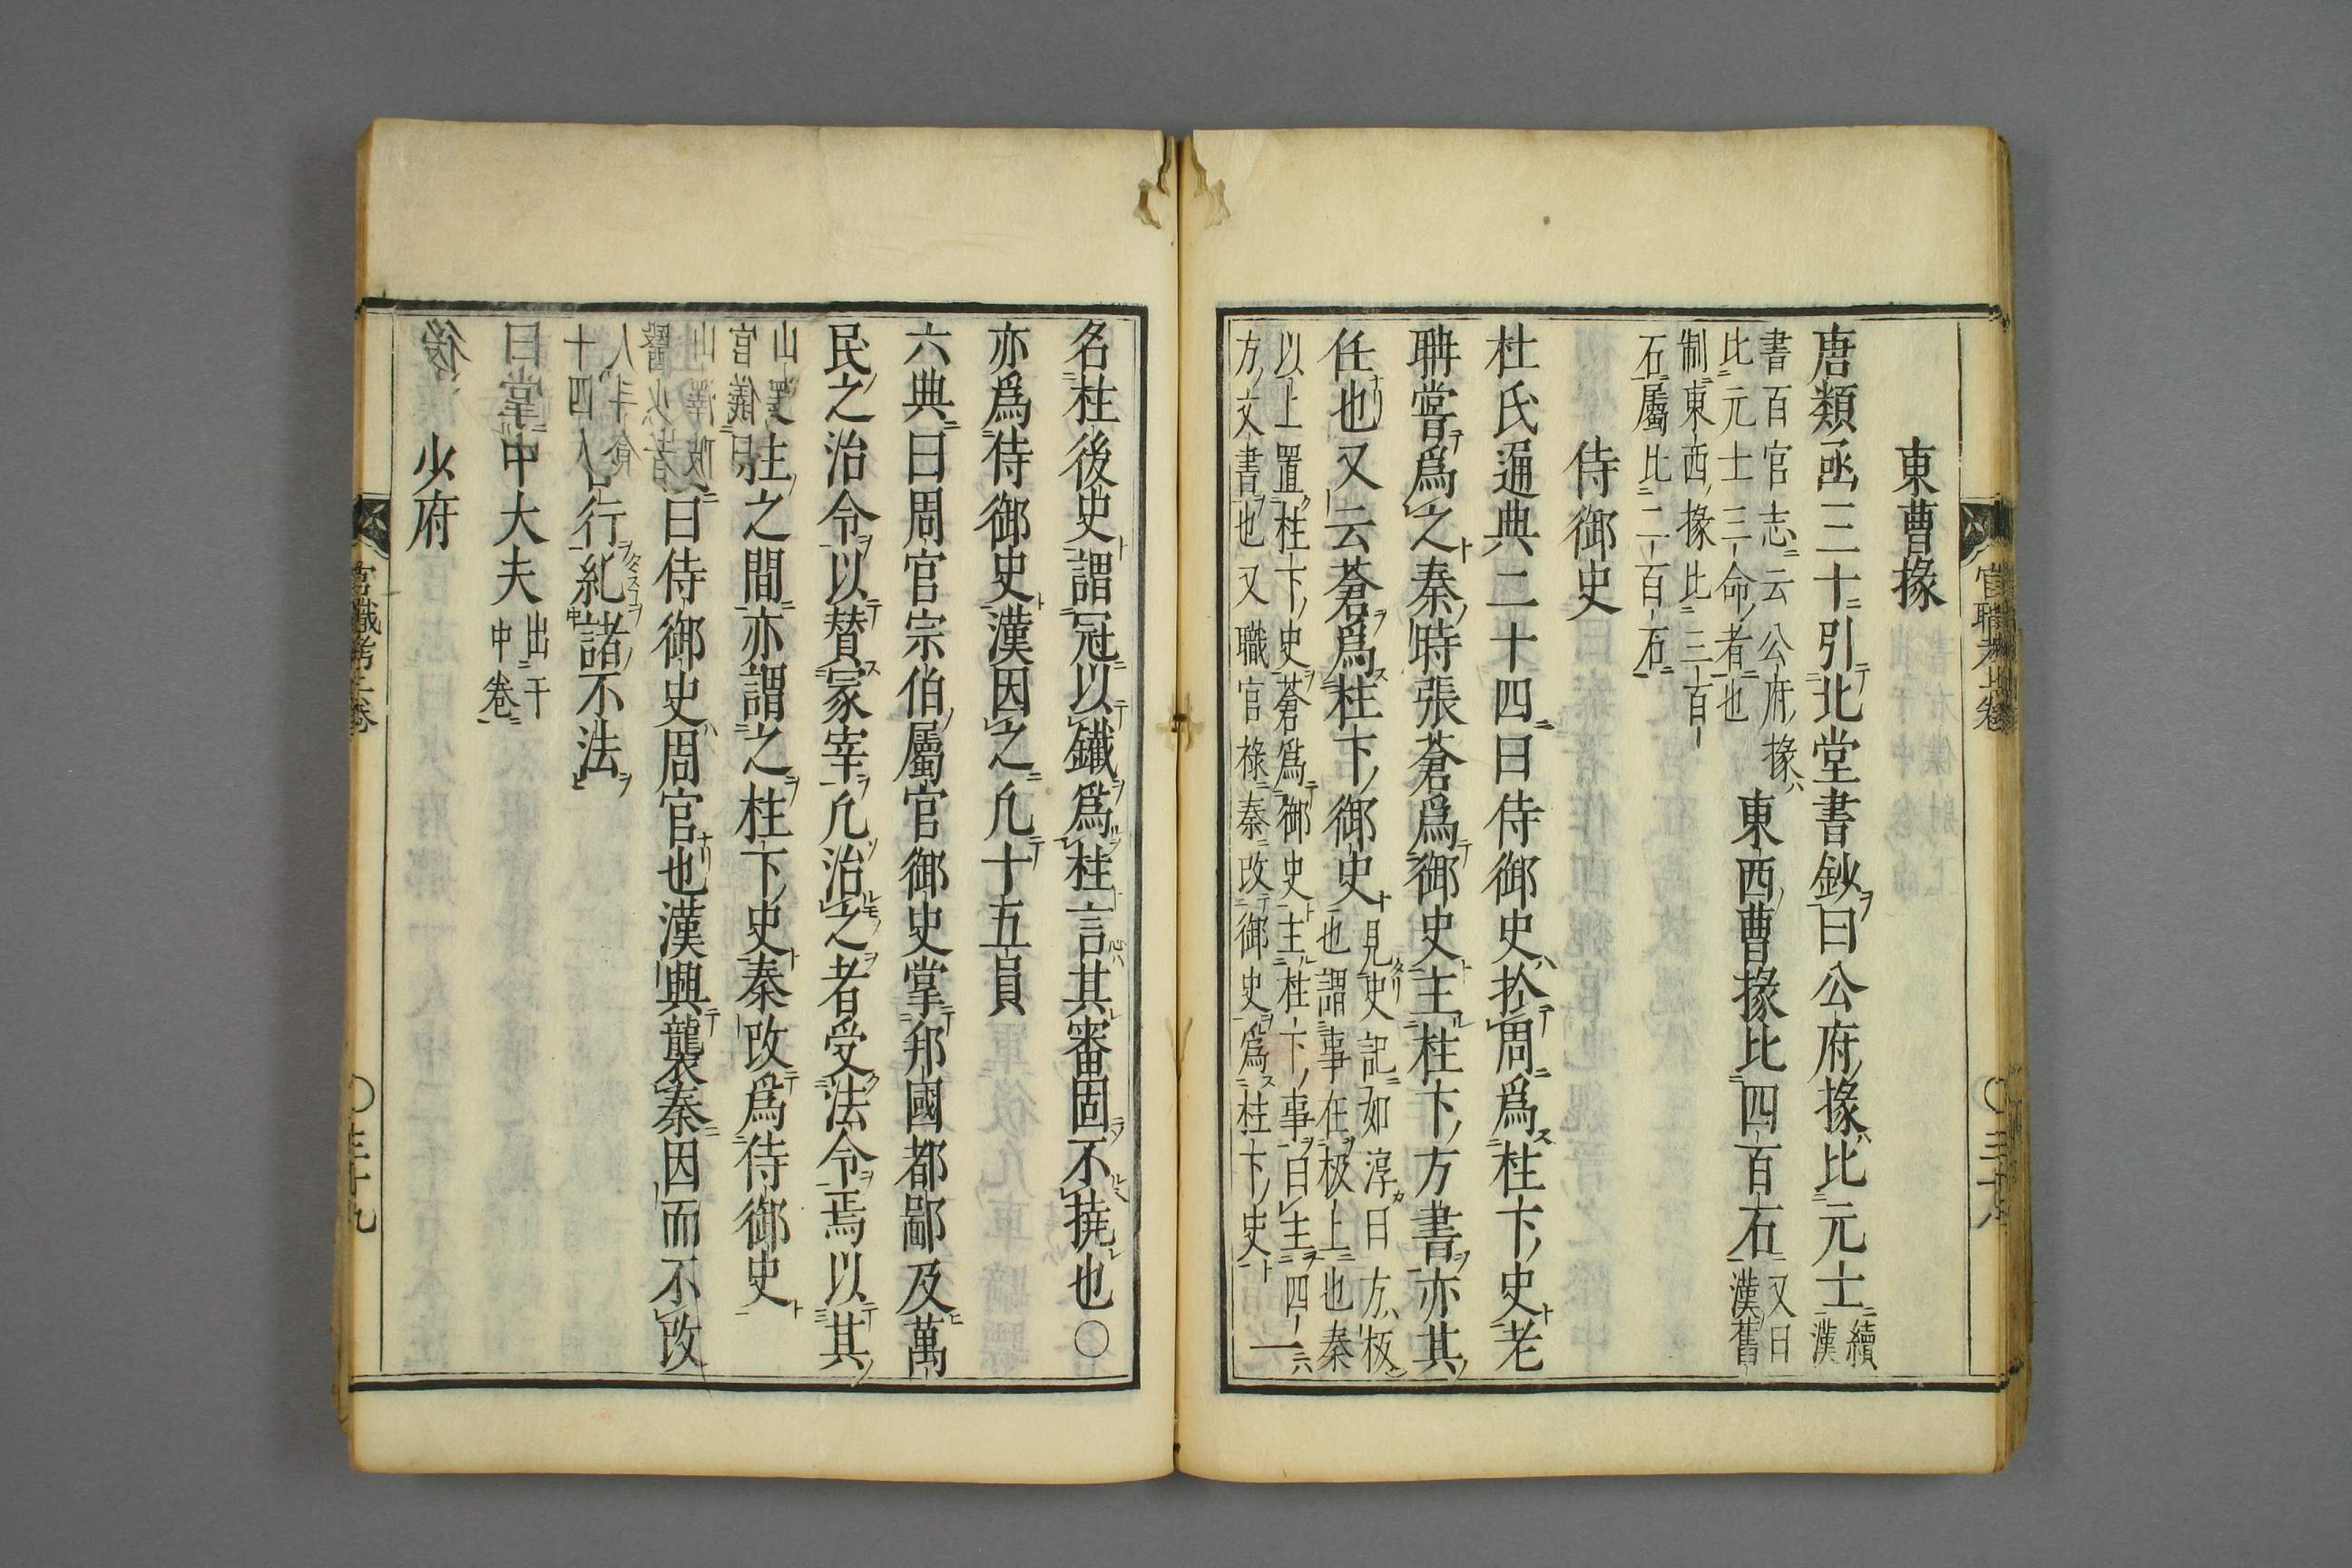 東曹掾
唐類函三十引北堂書鈔曰公府掾比元士續漢
書百官志云公府掾東西曹掾比四百石又曰漢舊
比元士三命者也
制東西掾比三百
石屬比二百石
侍御史
杜氏通典二十四曰侍御史扵周爲柱下史老
聃嘗爲之秦時張蒼爲御史主柱下方書亦其
任也又云蒼爲柱下御史見史記如淳曰方板
也謂事在板上也秦
以上置柱下史蒼爲御史主柱下事曰主四
方文書也又職官祿秦改御史爲柱下史一
名柱後史謂冠以鐵爲柱言其審固不撓也〇
亦爲侍御史漢因之凢十五員
六典曰周官宗伯屬官御史掌邦國都鄙及萬
民之治令以賛冢宰凢治之者受法令焉以其
在柱之間亦謂之柱下史秦改爲侍御史
曰侍御史周官也漢興襲秦因而不改
行糺諸不法
中大夫出干
中卷
少府
官職考上卷
〇三十八
〇三十九